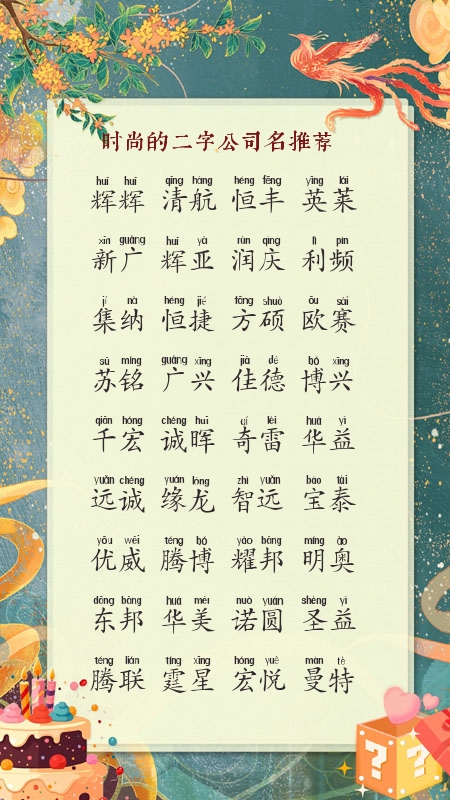 时尚的二字公司名推荐
huī huī qīng háng héng fēng yīng lái
辉辉 清航 恒丰 英莱
xīn guǎng huī yà rùn qìng lì pín
新广 辉亚 润庆 利频
jí nà héng jié fāng shuò ōu sài
集纳 恒捷 方硕 欧赛
sū míng guǎng xīng jiā dé bó xīng
苏铭 广兴 佳德 博兴
qiān hóng chéng huī qí léi huá yì
千宏 诚晖 奇雷 华益
yuǎn chéng yuán lóng zhì yuǎn bǎo tài
远诚 缘龙 智远 宝泰
yōu wēi téng bó yào bāng míng ào
优威 腾博 耀邦 明奥
dōng bāng huá měi nuò yuán shèng yì
东邦 华美 诺圆 圣益
téng lián tíng xīng hóng yuè màn tè
腾联 霆星 宏悦 曼特
? ?